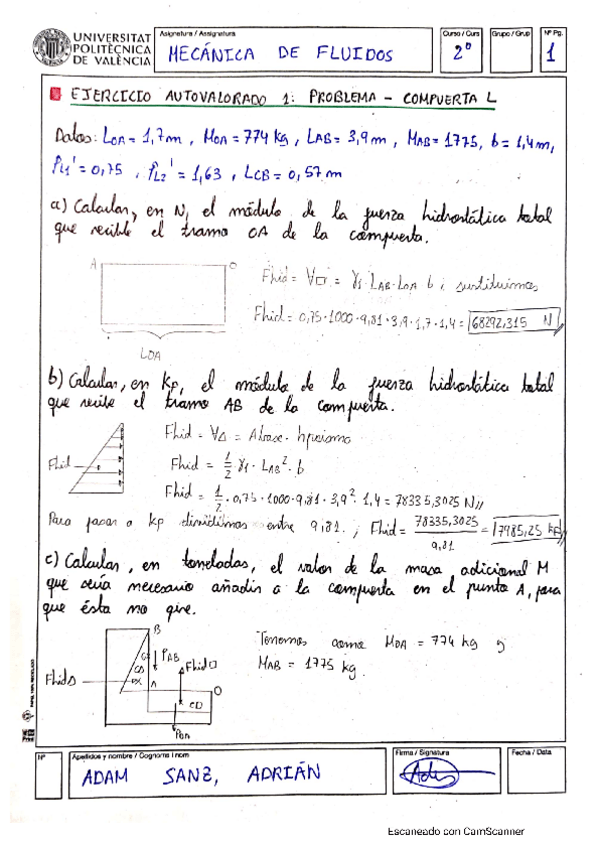 UNIVERSITAT
POLITÈCNICA
DE VALÈNCIA
Asignatura / Assignatura
MECÁNICA DE FLUIDOS
Curso / Curs
2º
Grupo / Grup
Nº Pg.
1
EJERCICIO AUTOVALORADO 1: PROBLEMA - COMPUERTA L
Datos: LOA = 1,7m, MOA = 774 kg, LAB = 3,9m, MAB = 1775, b = 1,4m,
ρL1' = 0,75, ρL2' = 1,63, LCB = 0,57m
a) Calcular, en N, el módulo de la fuerza hidrostática total
que recibe el tramo OA de la compuerta.
A
O
LOA
Fhid = V□ = γ1 LAB · LOA b ; sustituimos
Fhid = 0,75·1000·9,81·3,9·1,7·1,4 = 68292,315 N
b) Calcular, en Kp, el módulo de la fuerza hidrostática total
que recibe el tramo AB de la compuerta.
Fhid
Fhid = V△ = Abase · hprisma
Fhid = 1/2 γ1 · LAB² · b
Fhid = 1/2 · 0,75 · 1000 · 9,81 · 3,9² · 1,4 = 78335,3025 N
Para pasar a kp dividimos entre 9,81 ; Fhid = 78335,3025/9,81 = 7985,25 kp
c) Calcular, en toneladas, el valor de la masa adicional M
que sería necesario añadir a la compuerta en el punto A, para
que ésta no gire.
B
PAB
Fhid□
CG
A
O
Fhid△
CD
POA
Tenemos como MOA = 774 kg y
MAB = 1775 kg.
Nº
Apellidos y nombre / Cognoms i nom
ADAM SANZ, ADRIÁN
Firma / Signatura
Fecha / Data
Escaneado con CamScanner